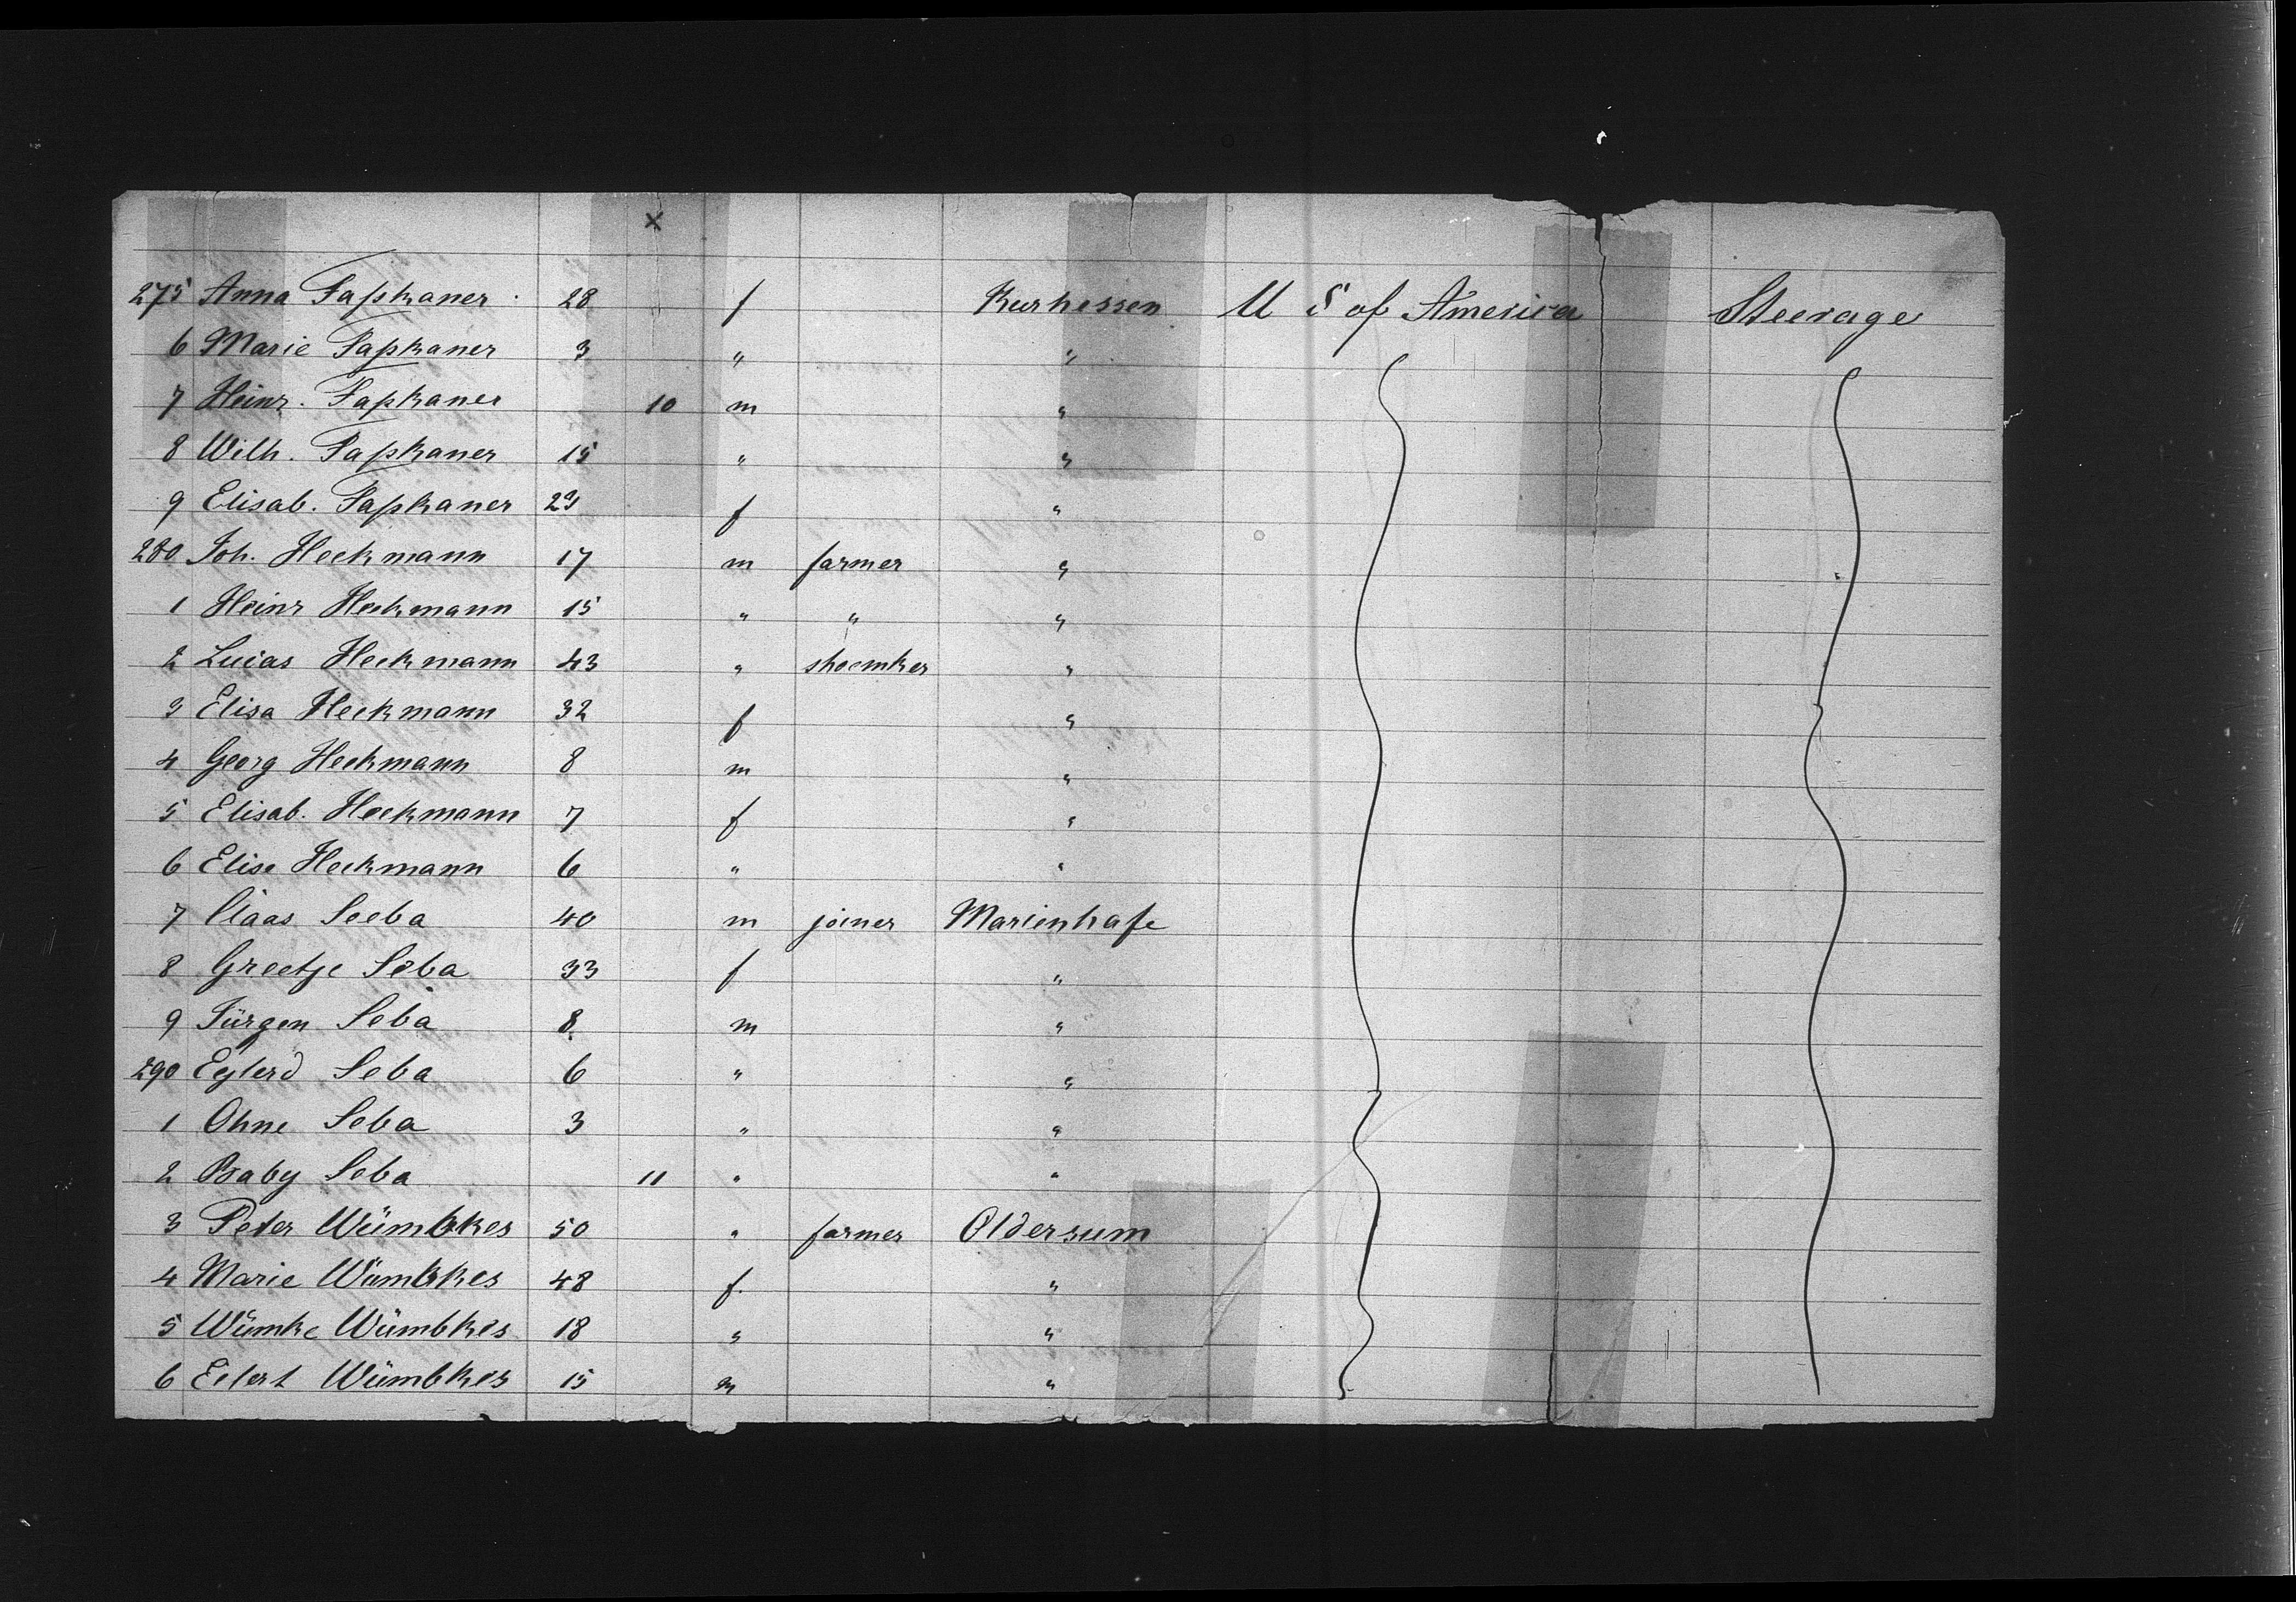 x
275 Anna Faßhauer 28 f Kurhessen U S of America Steerage
6 Marie Faßhauer 3 " "
7 Heinr. Faßhauer 10 m "
8 Wilh. Faßhauer 15 " "
9 Elisab. Faßhauer 23 f "
280 Joh. Heckmann 17 m farmer "
1 Heinr Heckmann 15 " " "
2 Lucas Heckmann 43 " shoemker "
3 Elisa Heckmann 32 f "
4 Georg Heckmann 8 m "
5 Elisab. Heckmann 7 f "
6 Elise Heckmann 6 " "
7 Claas Seeba 40 m joiner Marienhafe
8 Greetje Seba 33 f "
9 Jürgen Seba 8 m "
290 Eylerd Seba 6 " "
1 Ohne Seba 3 " "
2 Baby Seba 11 " "
3 Peter Wümbkes 50 " farmer Oldersum
4 Marie Wümbkes 48 f. "
5 Wümke Wümbkes 18 " "
6 Eilert Wümbkes 15 m "